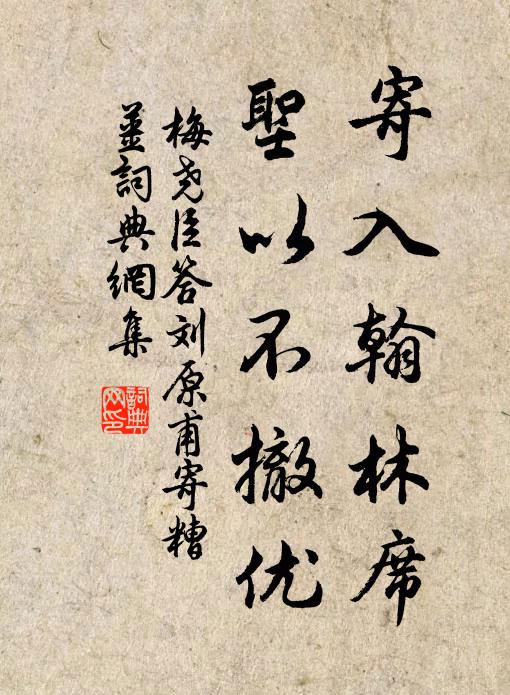 寄入翰林席
聖以不撤优
梅尧臣答刘原甫寄糟
薑詞典網集
詞典網印